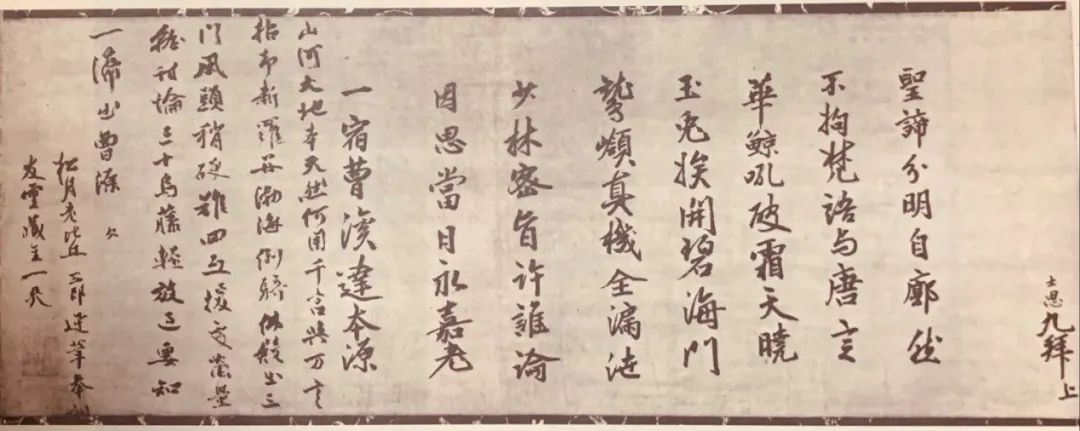 士思九拜上
聖諦分明自廓然
不拘梵語与唐言
華鯨吼破霜天曉
玉兎挨開碧海門
鷲嶺真機全漏泄
少林密旨許誰論
因思當日永嘉老
一宿曹溪達本源
山河大地本天然何用千言與万言
拈却新羅并渤海倒騎佛殿出三
門風頭稍硬難回互
三十烏藤輕放過要知
一滴出曹源
松月老比丘
友雲藏主一笑